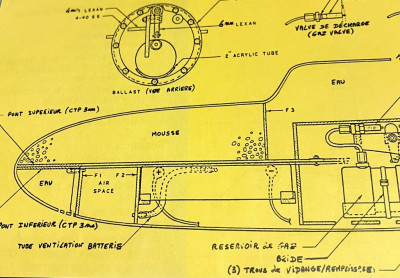 4mm LEXAN
4-40 SS
6mm LEXAN
VALVE DE DÉCHARGE
(GAZ VALVE)
2" ACRYLIC TUBE
BALLAST (VUE ARRIERE)
EAU
PONT SUPERIEUR (CTP 3mm)
F3
MOUSSE
EAU
F1
F2
AIR
SPACE
PONT INFERIEUR (CTP 3mm)
TUBE VENTILATION BATTERIE
RESERVOIR DE GAZ
BRIDE
(3) TROUS DE VIDANGE/REMPLISSAGE